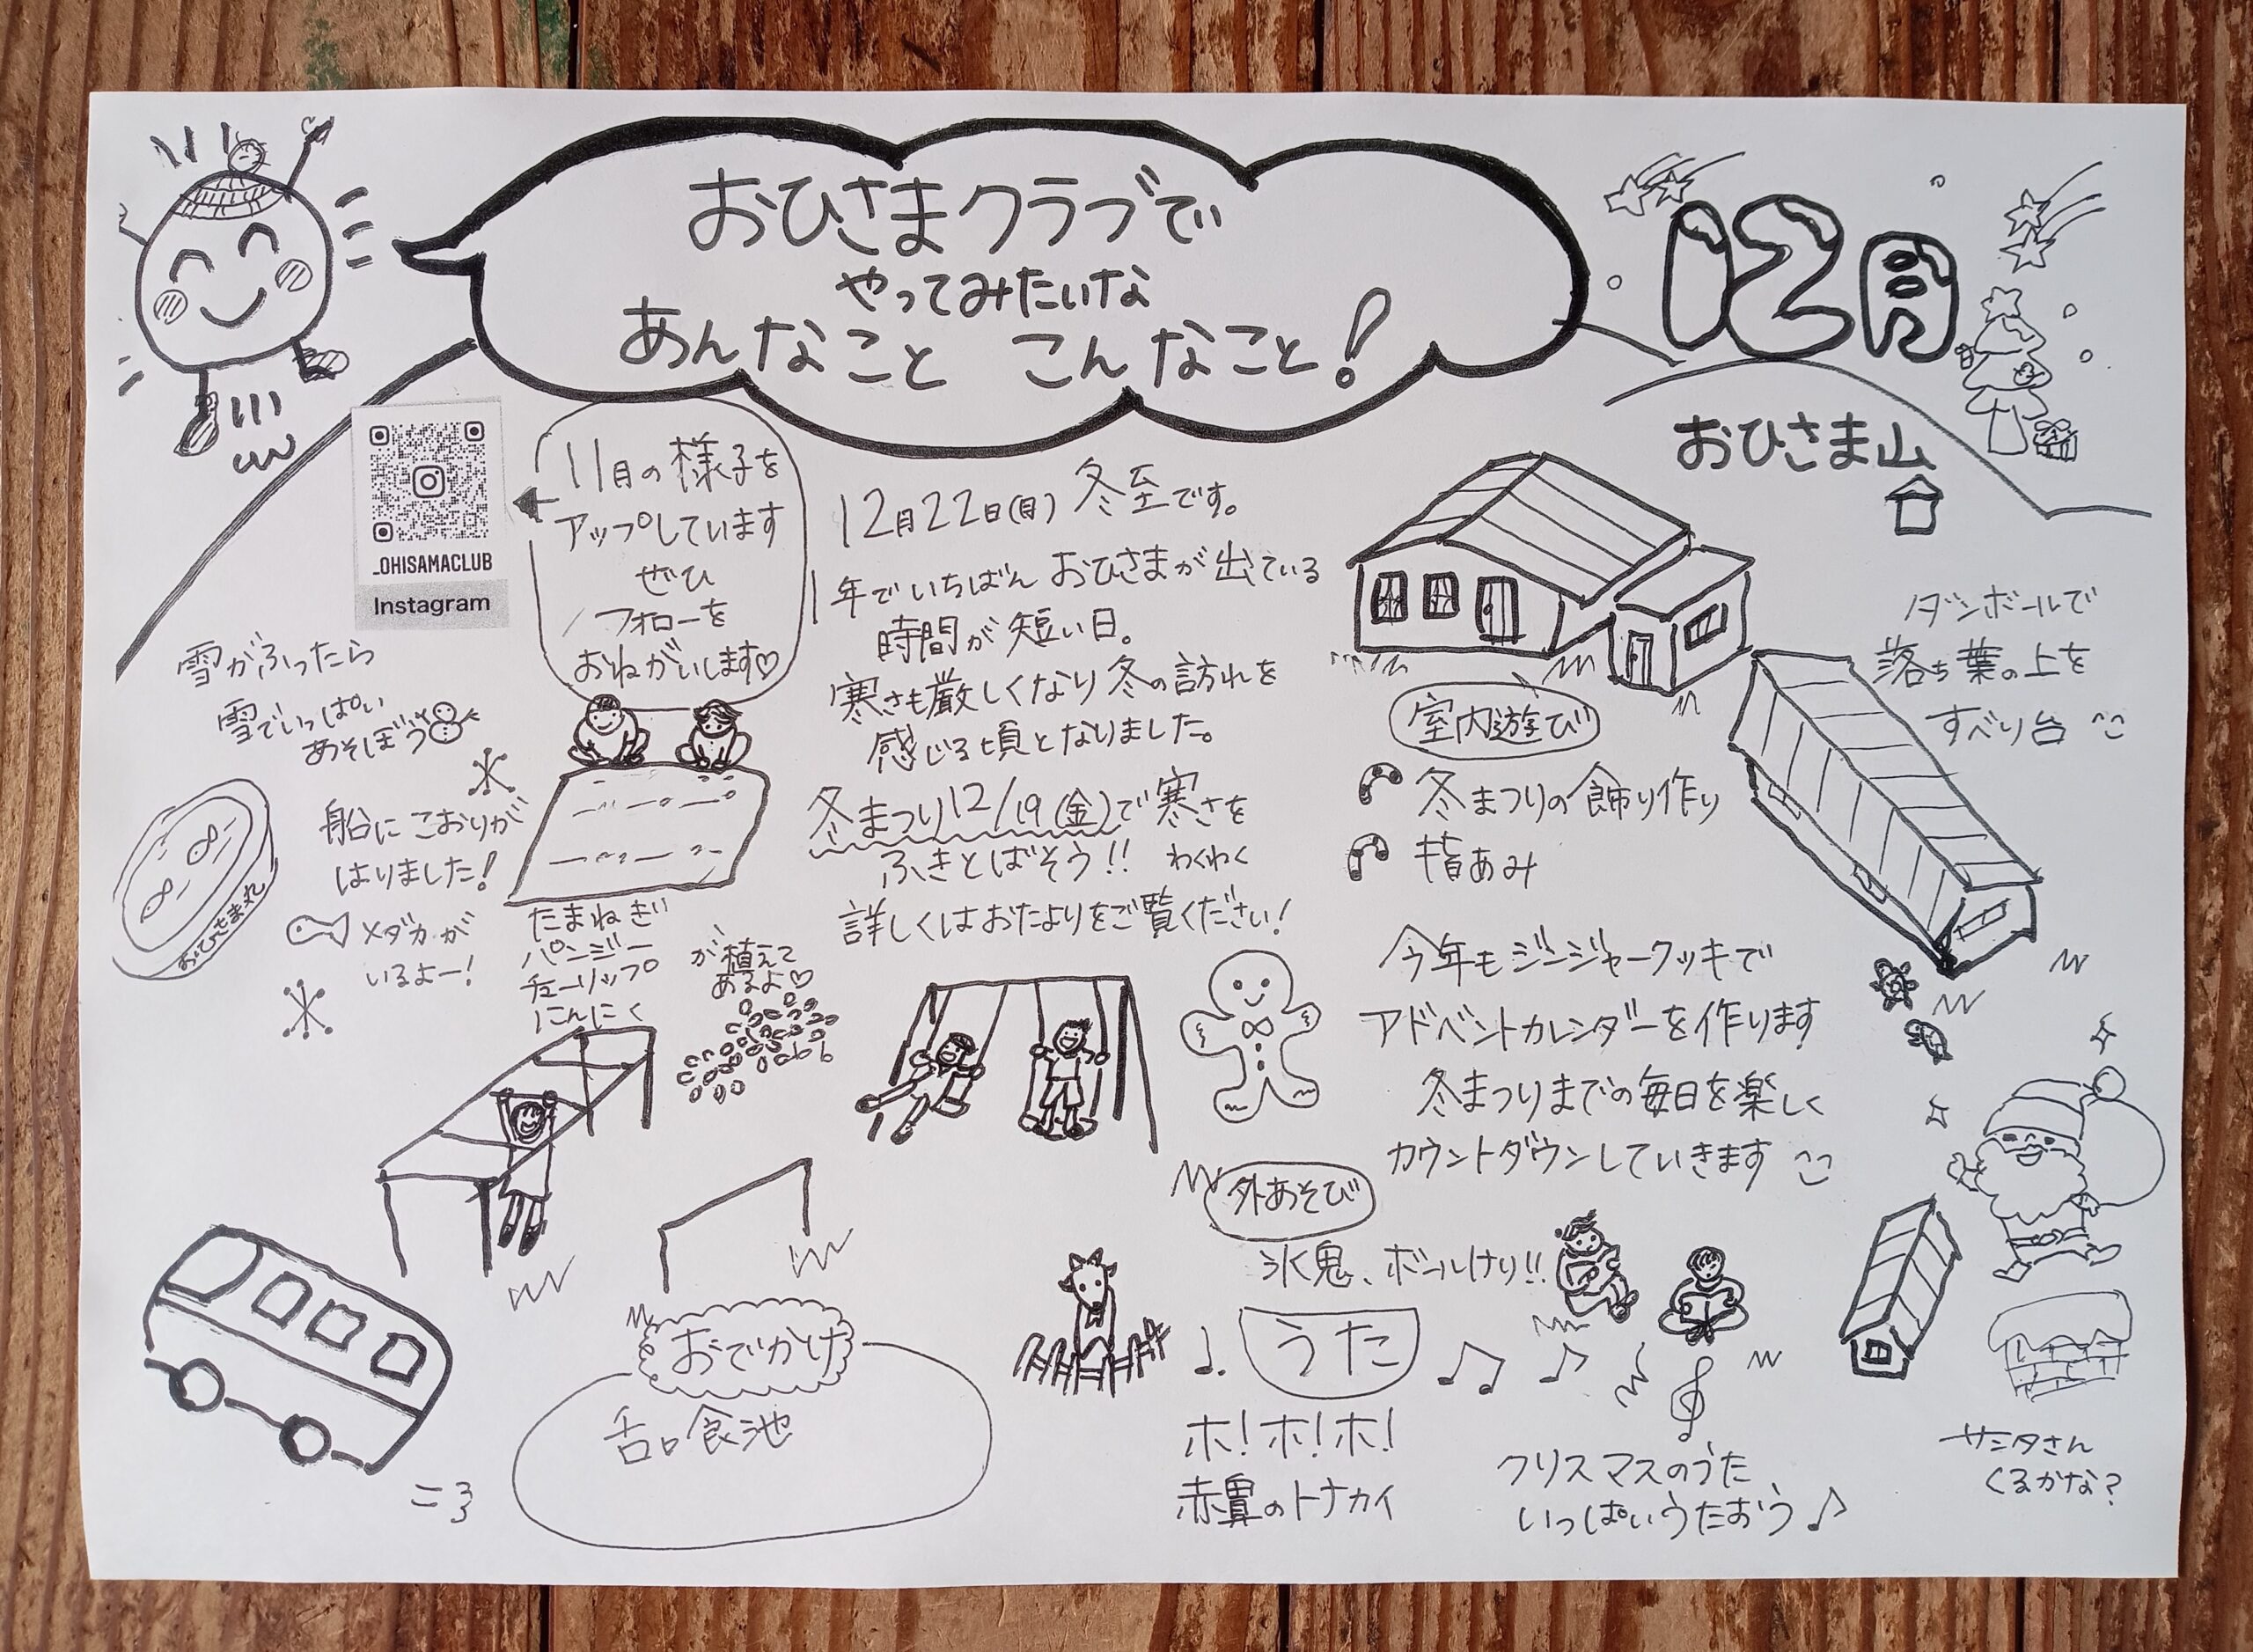 おひさまクラブで
やってみたいな
あんなこと こんなこと!
12月
おひさま山
11月の様子を
アップしています
ぜひ
フォローを
おねがいします♡
_OHISAMACLUB
Instagram
12月22日(月) 冬至です。
1年でいちばん おひさまが出ている
時間が短い日。
寒さも厳しくなり冬の訪れを
感じる頃となりました。
冬まつり12/19(金)で寒さを
ふきとばそう!! わくわく
詳しくはおたよりをご覧ください!
雪がふったら
雪でいっぱい
あそぼう
船にこおりが
はりました!
メダカが
いるよー!
おひさま丸
たまねぎ
パンジー
チューリップ
にんにく
が植えて
あるよ♡
室内遊び
冬まつりの飾り作り
指あみ
ダンボールで
落ち葉の上を
すべり台
今年もジンジャークッキで
アドベントカレンダーを作ります
冬まつりまでの毎日を楽しく
カウントダウンしていきます
外あそび
氷鬼、ボールけり!!
おでかけ
うた
ホ!ホ!ホ!
赤鼻のトナカイ
クリスマスのうた
いっぱいうたおう♪
サンタさん
くるかな?